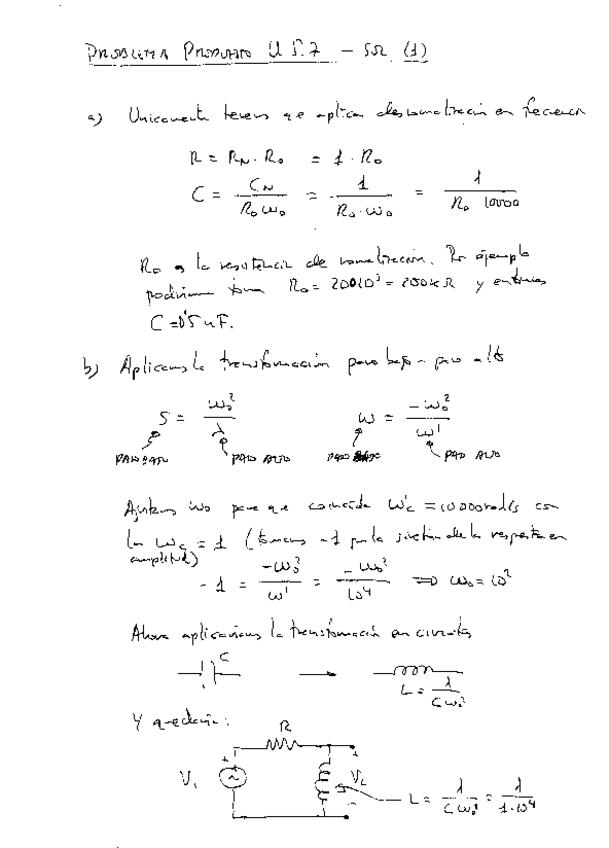 PROBLEMA PROPUESTO U.S.7 - SR (1)
a) Unicamente tenemos que aplicar desnormalización en frecuencia
R = R_N · R_0 = 1 · R_0
C = C_N / (R_0 ω_0) = 1 / (R_0 · ω_0) = 1 / (R_0 10000)
R_0 es la resistencia de normalización. Por ejemplo
podríamos tomar R_0 = 200 10^3 = 200 kΩ y entonces
C = 0'5 nF.
b) Aplicamos la transformación paso bajo - paso alto
S = ω_0^2 / λ      ω = -ω_0^2 / ω'
PASO BAJO   PASO ALTO   PASO BAJO   PASO ALTO
Ajustamos ω_0 para que coincida ω'_c = 10000 rad/s con
la ω_c = 1 (tomamos -1 por la simetría de la respuesta en
amplitud)
-1 = -ω_0^2 / ω' = -ω_0^2 / 10^4 ⟹ ω_0 = 10^2
Ahora aplicaríamos la transformación en circuitos
C
L = 1 / (C ω_0^2)
Y quedaría:
R
V_i   V_2   L = 1 / (C ω_0^2) = 1 / (1·10^4)